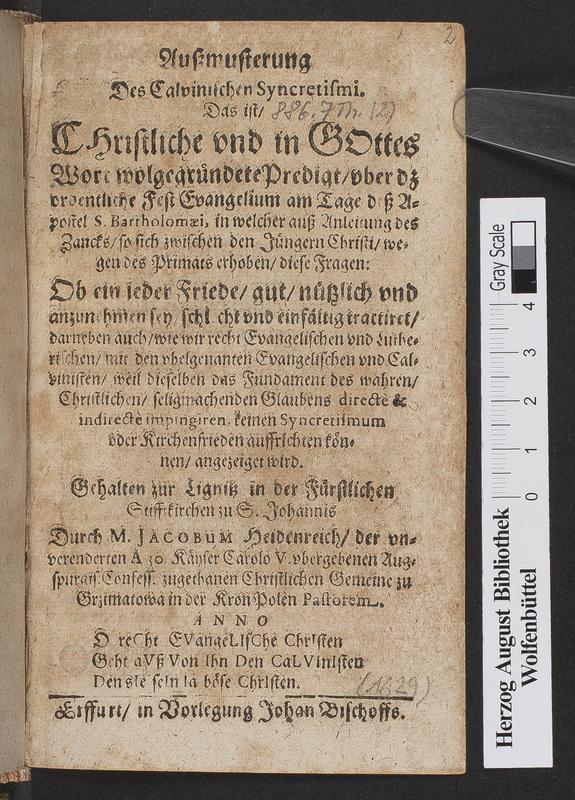 2
Außmusterung
Des Calvinischen Syncretismi.
Das ist/ 886. 7 Th. (2)
CHristliche vnd in GOttes
Wort wolgegründete Predigt/ vber dz
ordentliche Fest Evangelium am Tage deß A-
postel S. Bartholomæi, in welcher auß Anleitung des
Zancks/ so sich zwischen den Jüngern Christi/ we-
gen des Primats erhoben/ diese Fragen:
Ob ein jeder Friede/ gut/ nützlich vnd
anzunehmen sey/ schlecht vnd einfältig tractiret/
darneben auch/ wie wir recht Evangelischen vnd Luthe-
rischen/ mit den vbelgenanten Evangelischen vnd Cal-
vinisten/ weil dieselben das Fundament des wahren/
Christlichen/ seligmachenden Glaubens directè &
indirectè impingiren, keinen Syncretismum
oder Kirchenfrieden auffrichten kön-
nen/ angezeiget wird.
Gehalten zur Ligniß in der Fürstlichen
Stifftkirchen zu S. Johannis
Durch M. JACOBUM Heidenreich/ der vn-
verenderten A 30 Käyser Carolo V. vbergebenen Aug-
spurgis. Confess. zugethanen Christlichen Gemeine zu
Grzimatowa in der Kron Polen Pastorem.
ANNO
O reCht EVangeLIsChe ChrIsten
Geht aVß Von Ihn Den CaLVInIsten
Den sIe seIn Ia böse ChrIsten.
(1629)
Erffurt/ in Vorlegung Johan Bischoffs.
Gray Scale
0 1 2 3 4
Herzog August Bibliothek
Wolfenbüttel